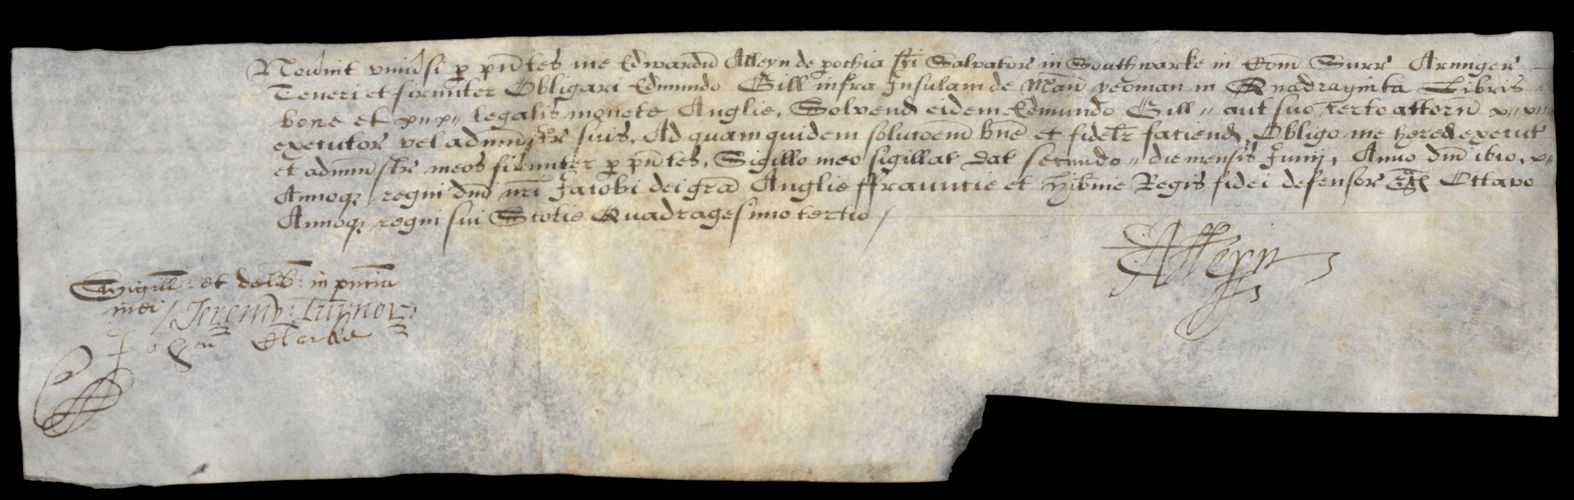 Nou'int vniu'si p p'ntes me Edwardu' Alleyn de pochia Sci Salvatoris in Southwarke in Com Surr Armiger
Teneri et firmiter Obligari Edmundo Gill infra Insulam de Man yeoman in Quadraginta Libris
bone et legalis monete Anglie. Solvend eidem Edmundo Gill aut suo certo attorn
executor vel admin'str suis. Ad quam quidem soluc'oem bn'e et fidelr faciend, Obligo me hered execut
et admin'str meos firmiter p p'ntes. Sigillo meo sigillat dat secundo die mensis Junij. Anno dni 1610.
Annoq regni dni nri Jacobi dei gra' Anglie ffrauncie et Hib'nie Regis fidei defensor &c Octavo
Annoq regni sui Scotie Quadragesimo tertio /
EAlleyn
Sigill: et delib: in p'ncia
mei / Jeremy: Turnor:
John Clarke